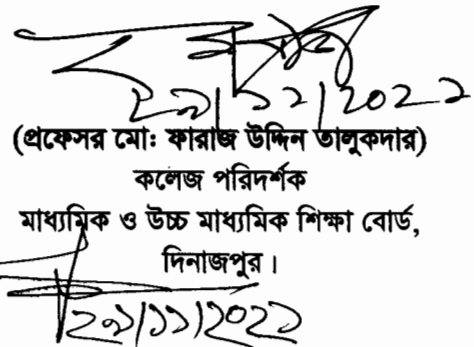 ২৯/১২/২০২২
(প্রফেসর মোঃ ফারাজ উদ্দিন তালুকদার)
কলেজ পরিদর্শক
মাধ্যমিক ও উচ্চ মাধ্যমিক শিক্ষা বোর্ড,
দিনাজপুর।